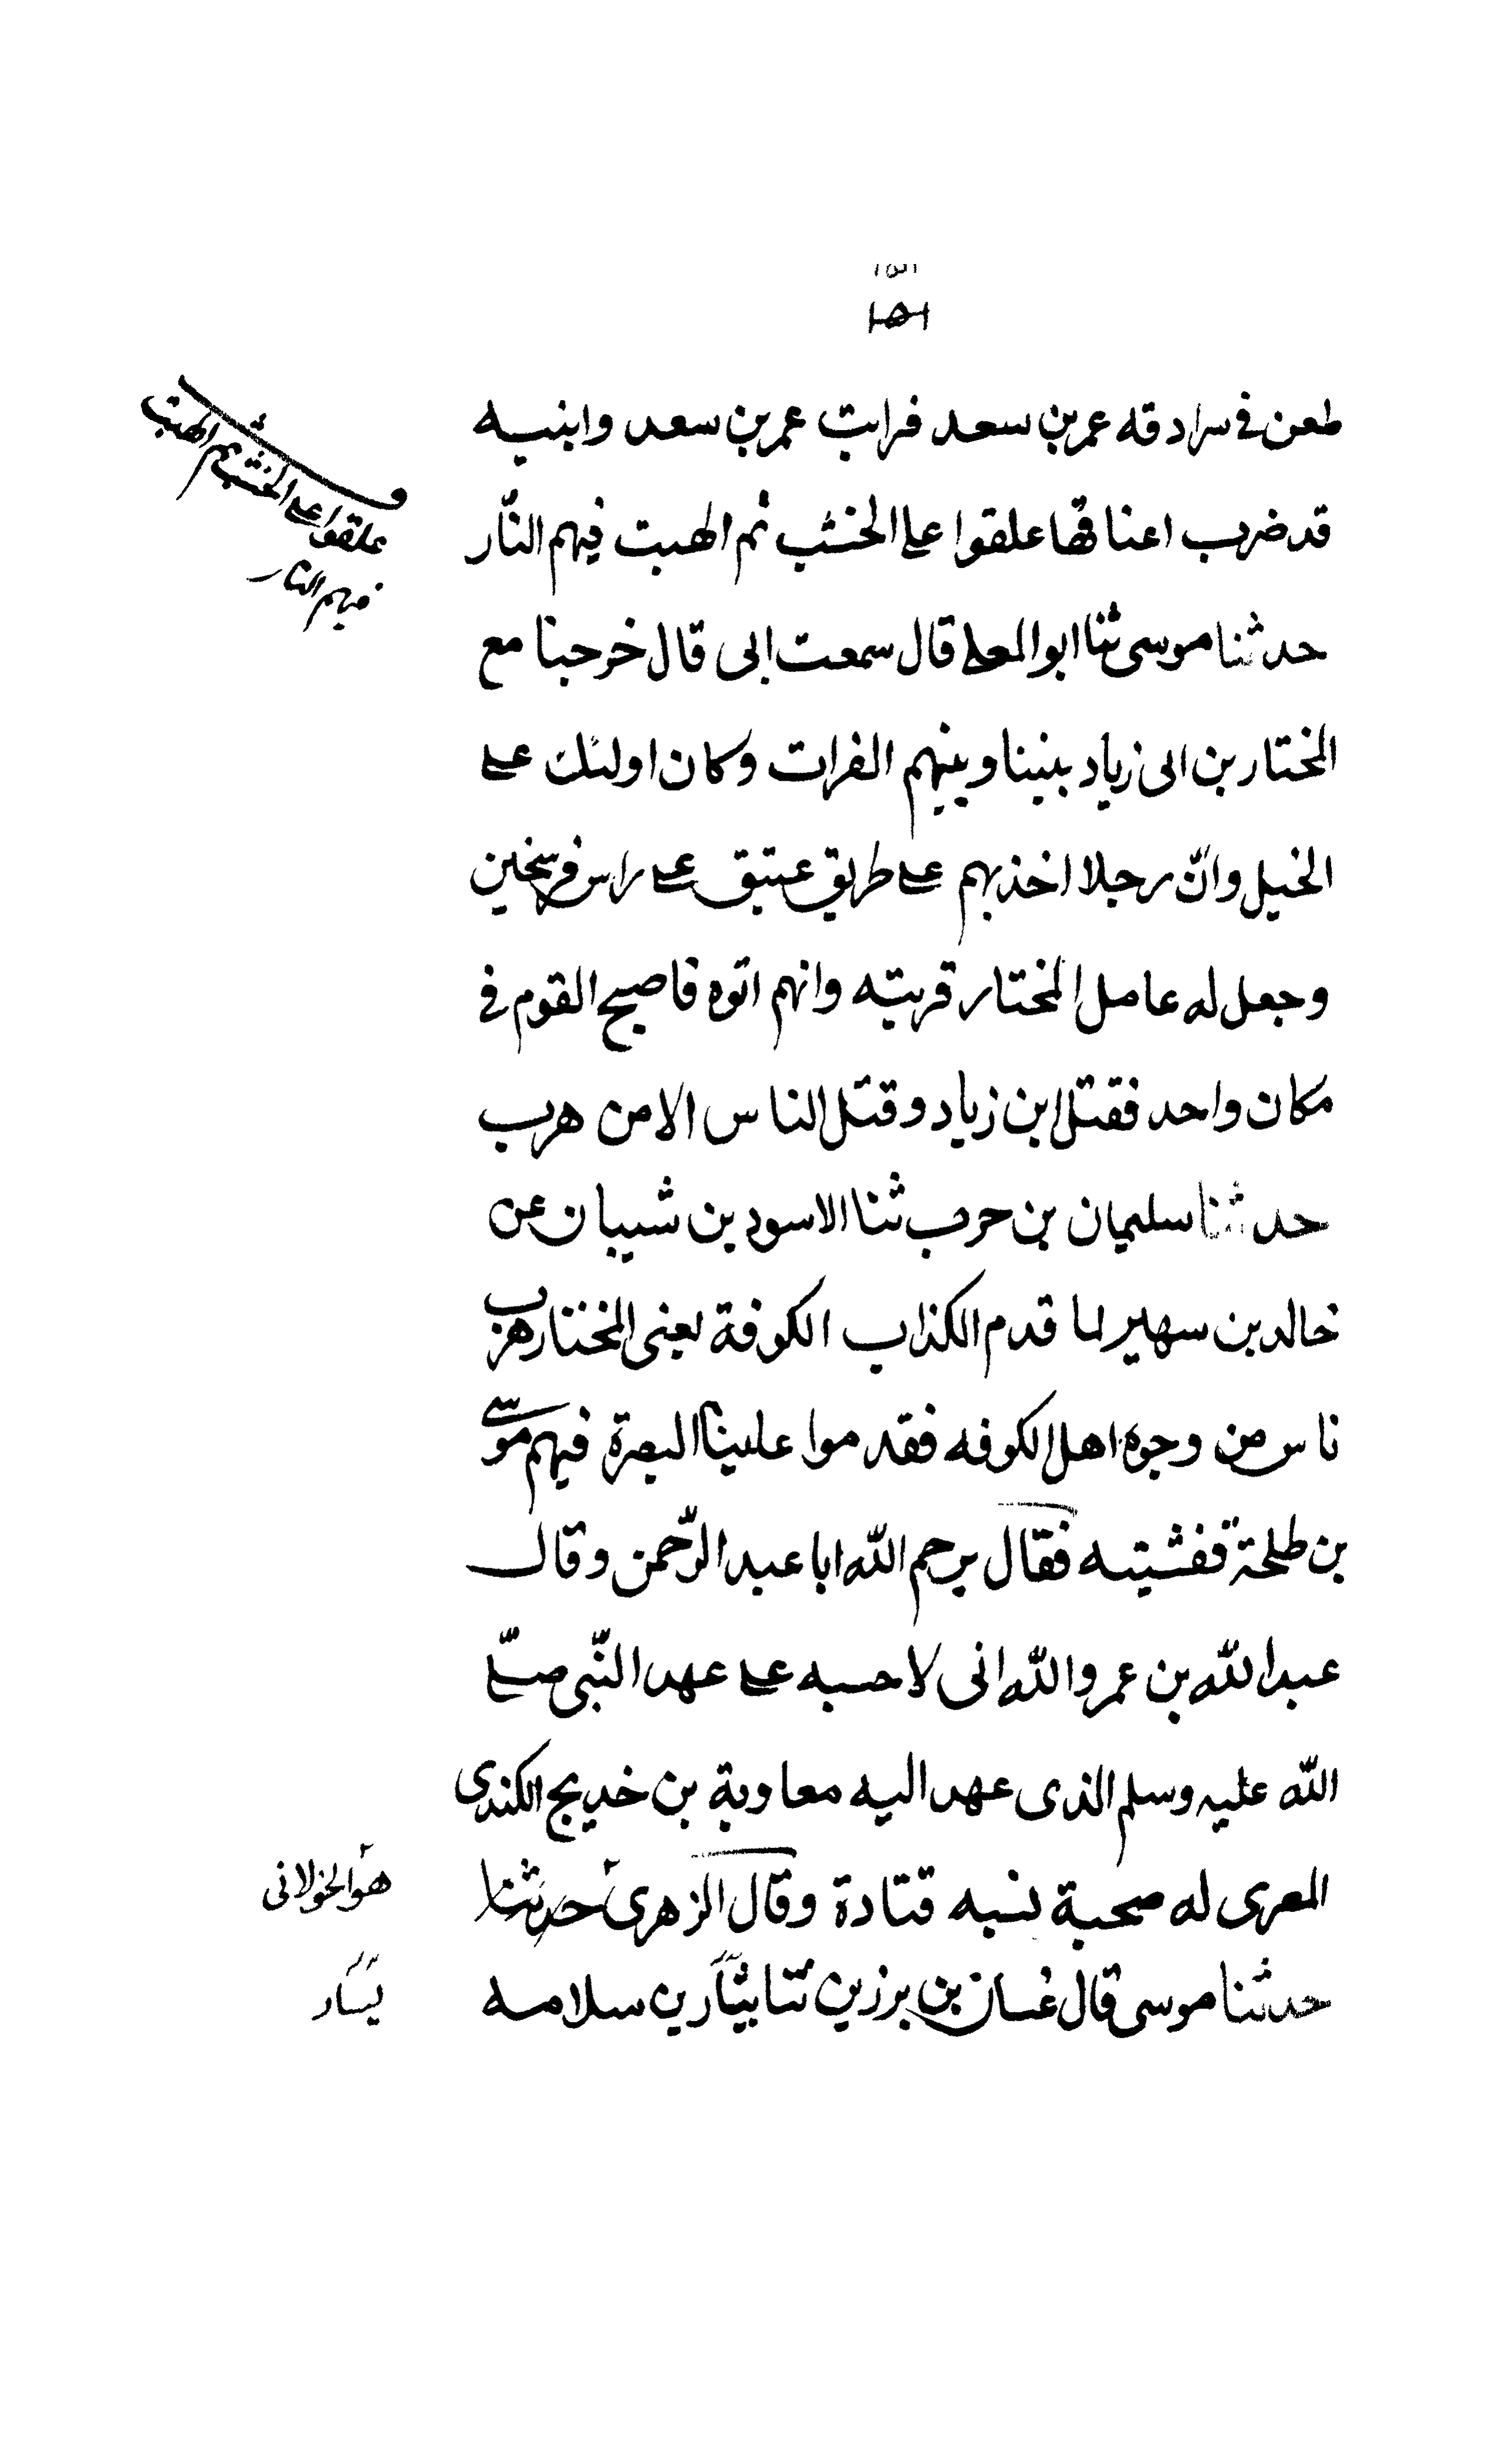 طعن فى سرادقه عمر بن سعد فرايت عمر بن سعد وابنيه
قد ضرب اعناقها علقوا على الخشب ثم الهبت فيهم النّار
حدثنا موسى ثنا ابو المعلى قال سمعت ابى قال خرجنا مع
المختار بن ابى زياد بيننا وبينهم الفرات وكان اولئك على
الخيل وانّ رجلا اخذ بهم على طريق عتيق على راس فرسخين
وجعل له عامل المختار قريته وانهم اتوه فاصبح القوم فى
مكان واحد فقتل ابن زياد وقتل الناس الا من هرب
حدثنا سليمان بن حرب ثنا الاسود بن شيبان عن
خالد بن سهير لما قدم الكذاب الكوفة يعنى المختار هرب
ناس من وجوه اهل الكوفه فقدموا علينا البصرة فيهم موسى
بن طلحة قغشيته فقال يرحم الله ابا عبد الرّحمن وقال
عبد الله بن عمر والله انى لاحسبه على عهد النّبى صلّى
الله عليه وسلم الذى عهد اليه معاوية بن خديج الكندى
المعرى له صحبة نسبه قتادة وقال الزهرى حدثنا
حدثنا موسى قال غسان بن برزين ثنا يسار بن سلامه
وعلقوا على الخشب ثم الهبت
فيهم النار
هو الخولانى
يسار